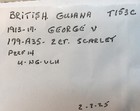 BRITISH GUIANA T153C
1913-19. GEORGE V
179-A35- 2CT. SCARLET
PERF 14
H-NG-VLH
2-2-25